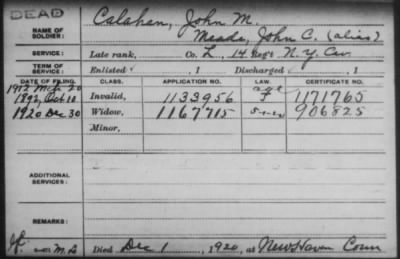 DEAD
Calahan, John M.
NAME OF SOLDIER: Meade, John C. (alias)
SERVICE: Late rank, Co. L, 14 Reg't N. Y. Cav
TERM OF SERVICE: Enlisted , 1 Discharged , 1
DATE OF FILING. CLASS. APPLICATION NO. LAW. CERTIFICATE NO.
1912 Mch 20 age
1892, Oct 10 Invalid, 1133956 F 1171765
1920 Dec 30 Widow, 1167715 5-1-20 906825
Minor,
ADDITIONAL SERVICES:
REMARKS:
Died Dec 1 , 1920, at New Haven Conn